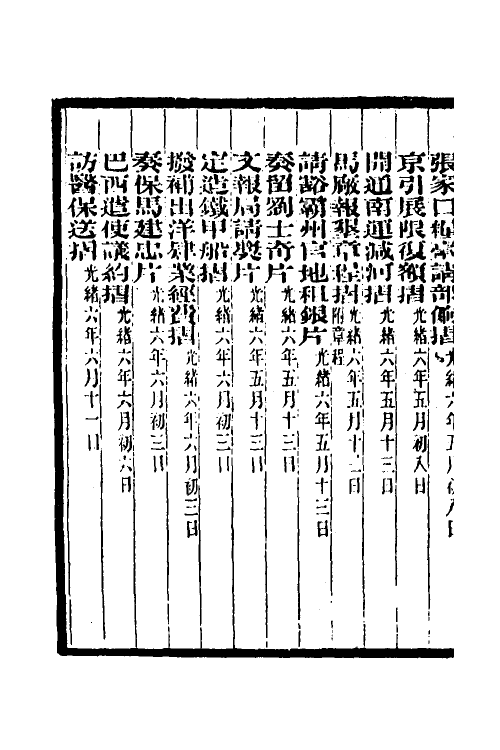 張家口稅務請部停摺光緒六年五月初八日
京引展限復額摺光緒六年五月初八日
開通南運減河摺光緒六年五月十三日
馬廠報墾章程摺附章程光緒六年五月十三日
請豁霸州官地租銀片光緒六年五月十三日
奏留劉士奇片光緒六年五月十三日
文報局請獎片光緒六年五月十三日
定造鐵甲船摺光緒六年六月初三日
撥補出洋肄業經費摺光緒六年六月初三日
奏保馬建忠片光緒六年六月初三日
巴西遣使議約摺光緒六年六月初六日
訪醫保送摺光緒六年六月十一日